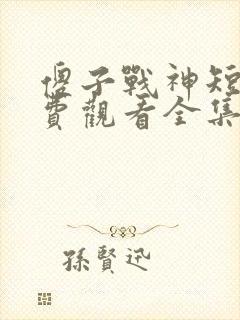 傻子戰神短
費觀看全集
孫賢迅